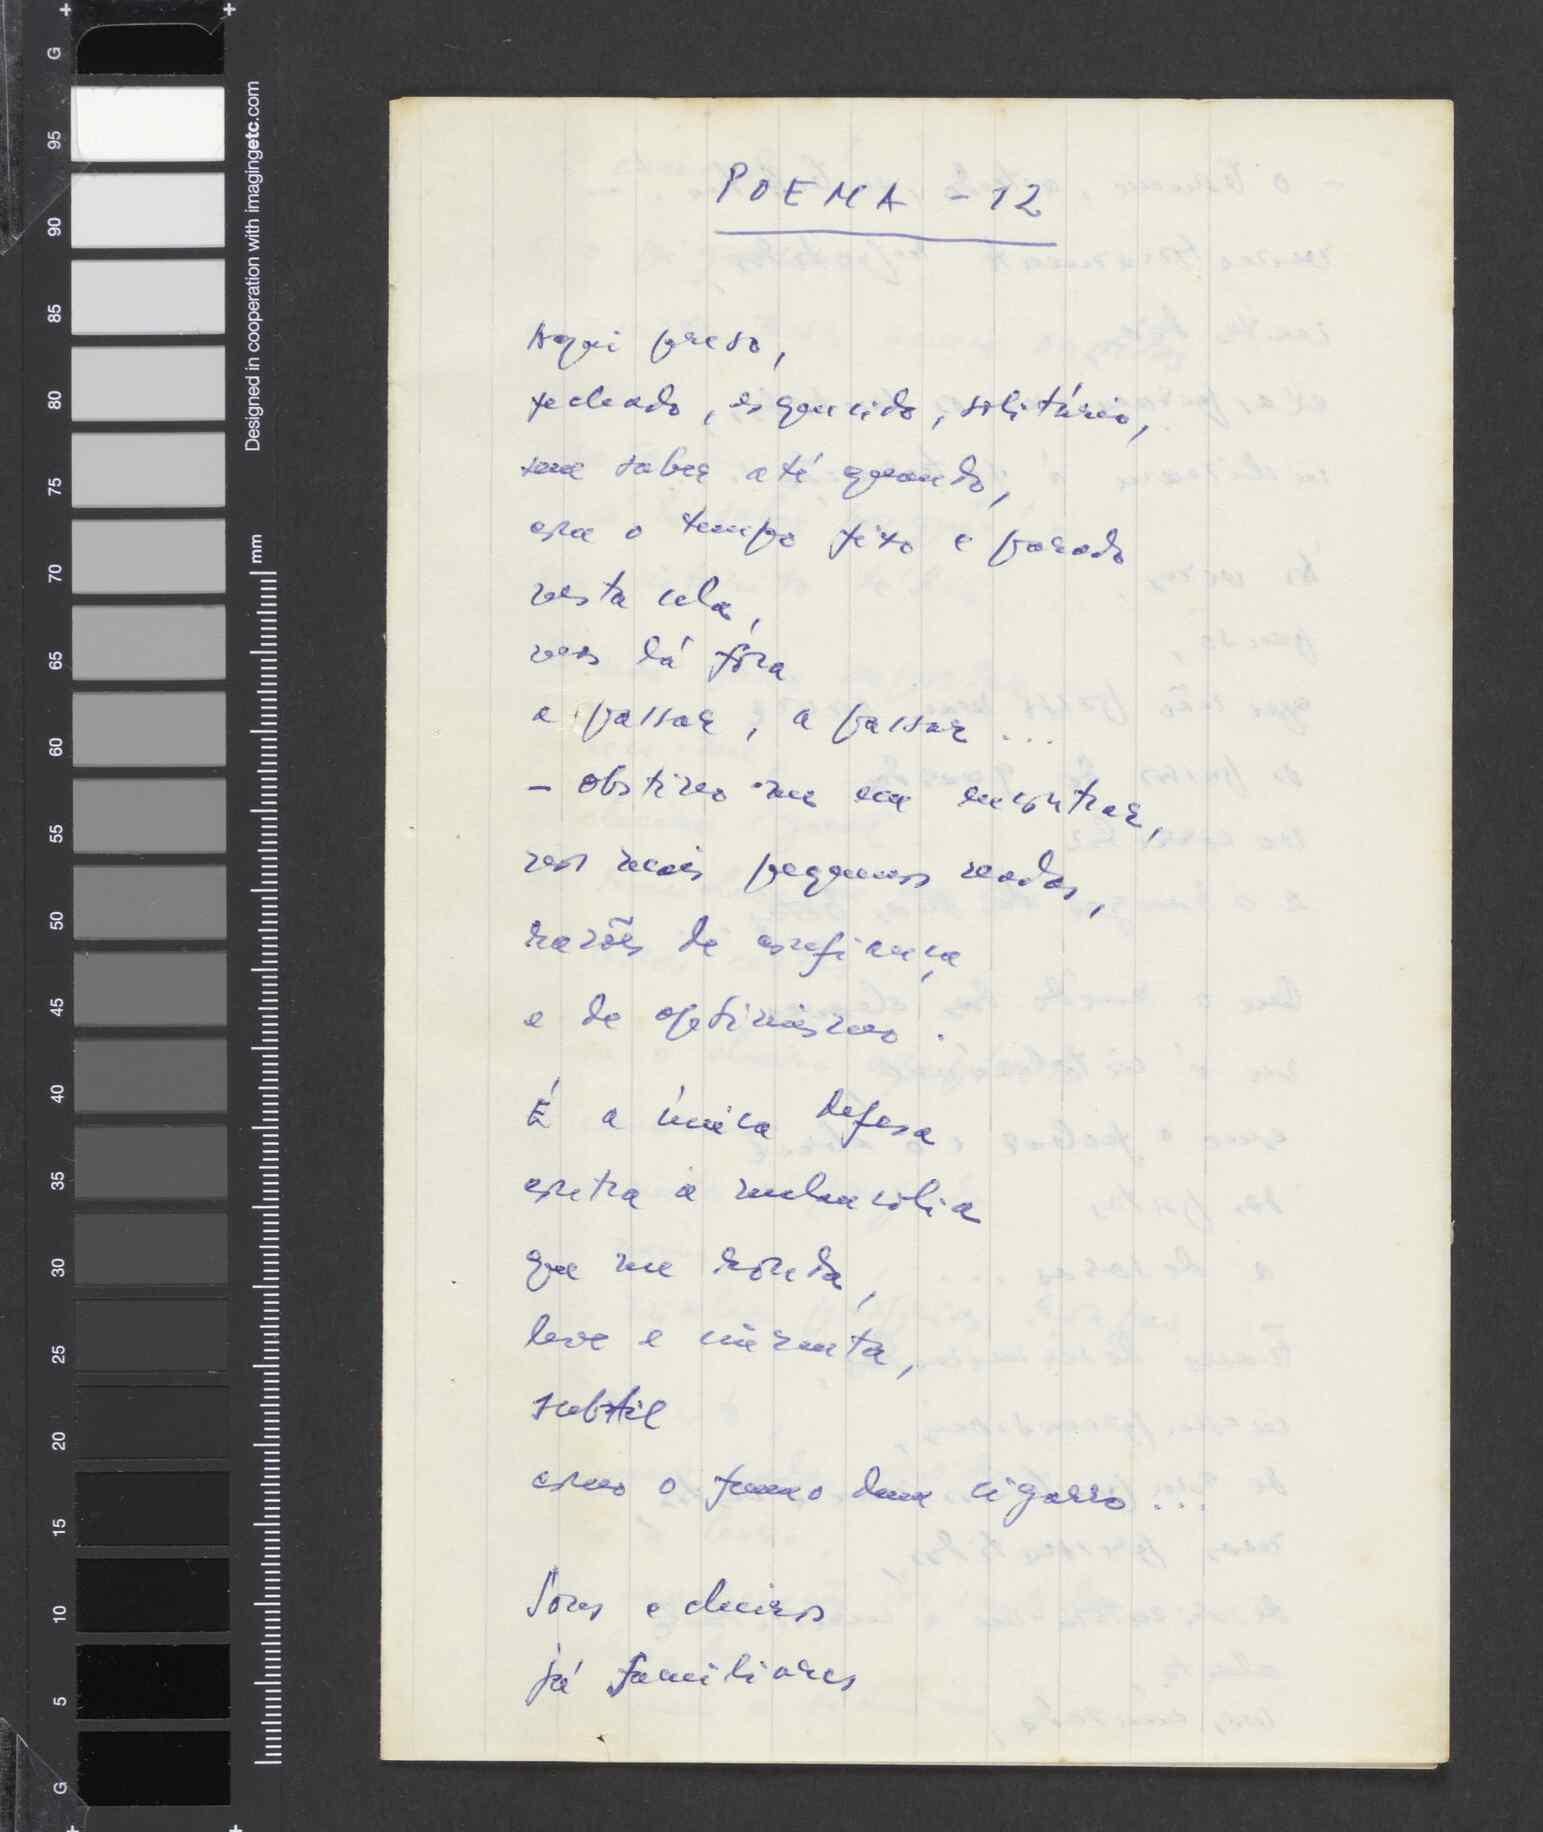 G
95
90
85
80
75
70
65
60
55
50
45
40
35
30
25
20
15
10
5
G
Designed in cooperation with imagingetc.com
mm
POEMA - 12
Aqui preso,
fechado, esquecido, solitário,
sem saber até quando,
com o tempo fixo e parado
nesta cela,
mas lá fóra
a passar, a passar ...
- obstino-me em encontrar,
nos mais pequenos nadas,
razões de confiança
e de optimismo.
É a única defesa
contra a melancolia
que me ronda,
leve e cinzenta,
subtil
como o fumo dum cigarro ...
Sons e cheiros
já familiares